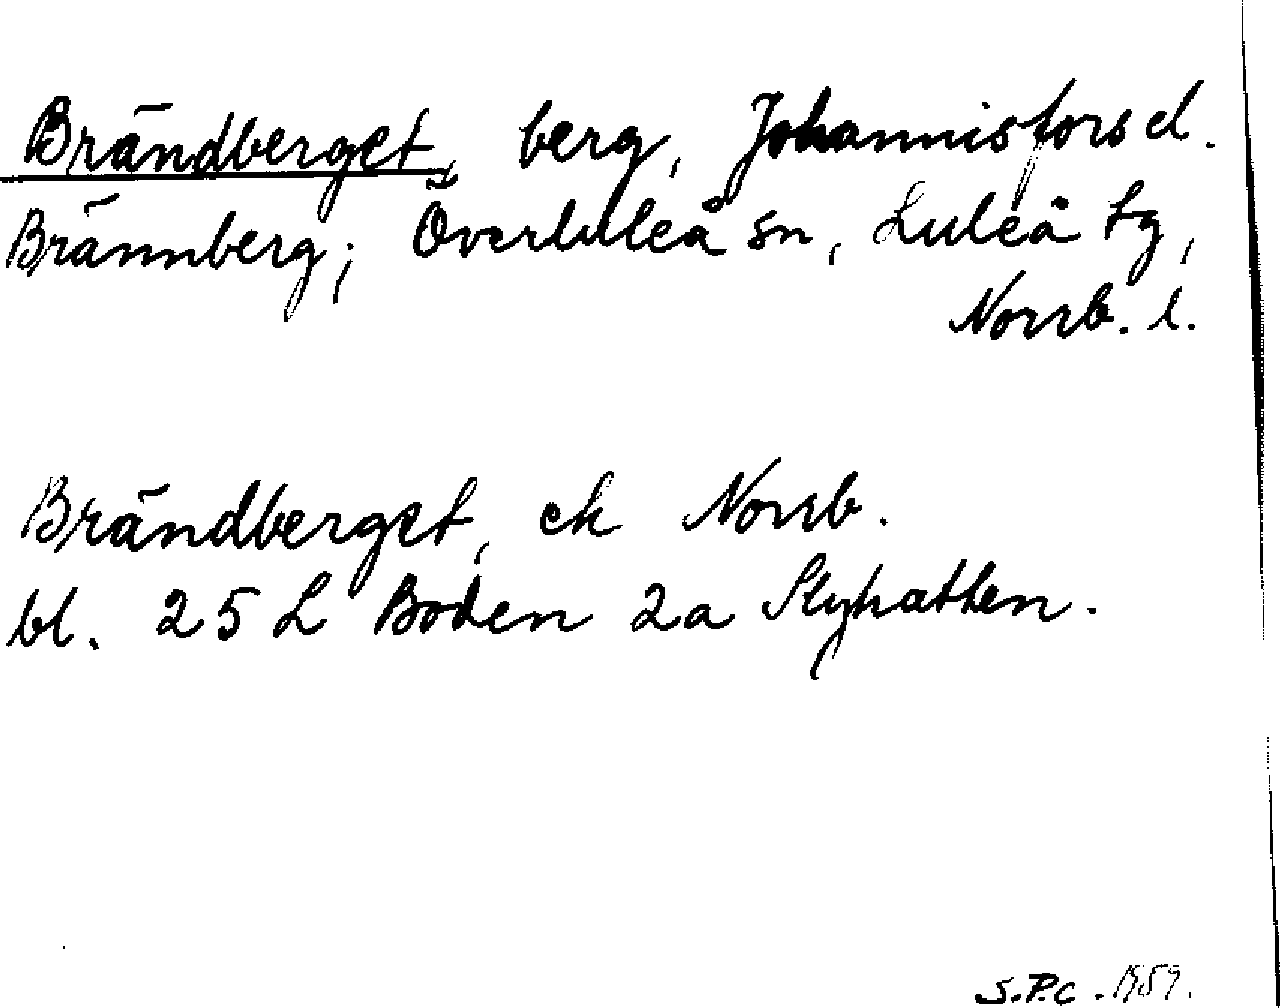 Brändberget, berg, Johannisfors el.
Brännberg; Överluleå sn, Luleå tg,
Norrb. l.
Brändberget, ek Norrb.
bl. 25 L Boden 2a Slyhatten.
S.P.C. 1959.